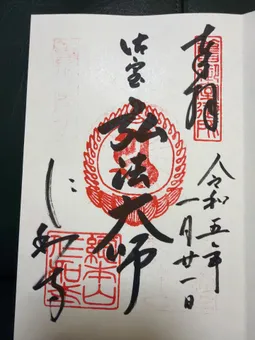 奉拝
令和五年
一月廿一日
弘法大師
仁和寺
總本山
仁和寺